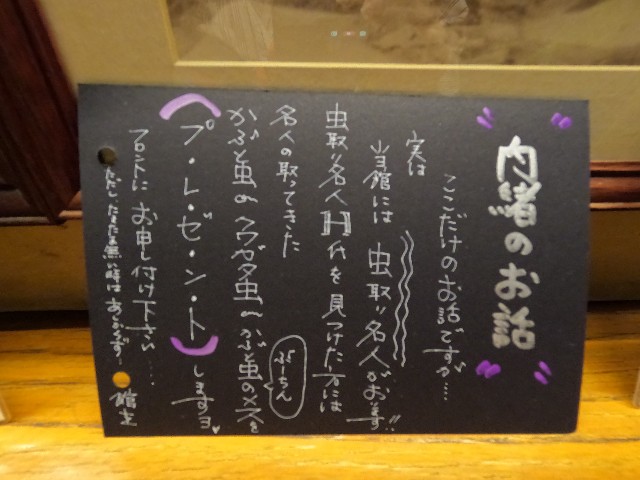 "内緒のお話"
ここだけのお話ですが…
実は
当館には 虫取り名人がおります!!
虫取り名人H氏を見つけた方には
名人の取ってきた
かぶと虫or クワガタ虫orかぶと虫のメスを
ぶーちん
(プ・レ・ゼ・ン・ト)しますヨ♥
フロントに お申し付け下さい……
ただし、たまたま無い時は あしからず…
館主